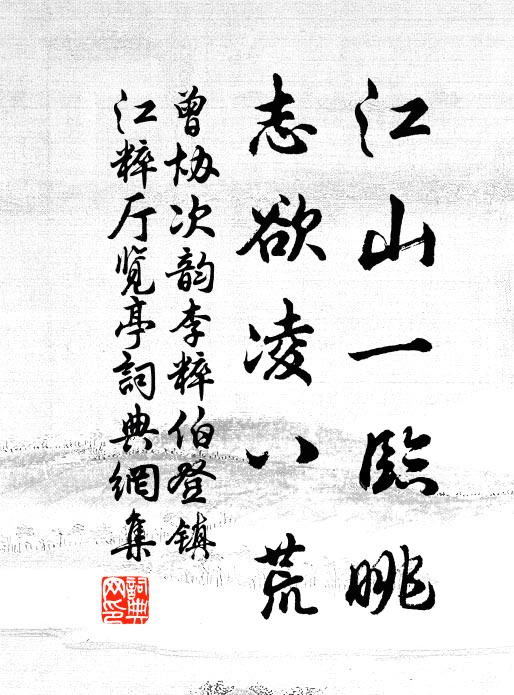 江山一臨眺
志欲凌八荒
曾协次韵李粹伯登镇
江粹厅览亭詞典網集
詞典网印